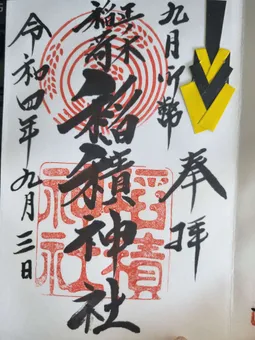 九月御幣
奉拝
正木
稲荷
稲積神社
令和四年九月三日
稲積
神社